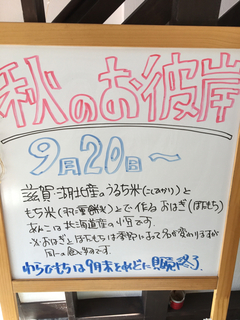 秋のお彼岸
9月20日〜
滋賀・湖北産のうるち米(こしひかり)と
もち米(羽二重餅)とで作るおはぎ(ぼたもち)
あんこは北海道産の小豆です
※おはぎとぼたもちは季節によって名が変わりますが
同一の食べ物です。
わらびもちは9月末をめどに販売終了